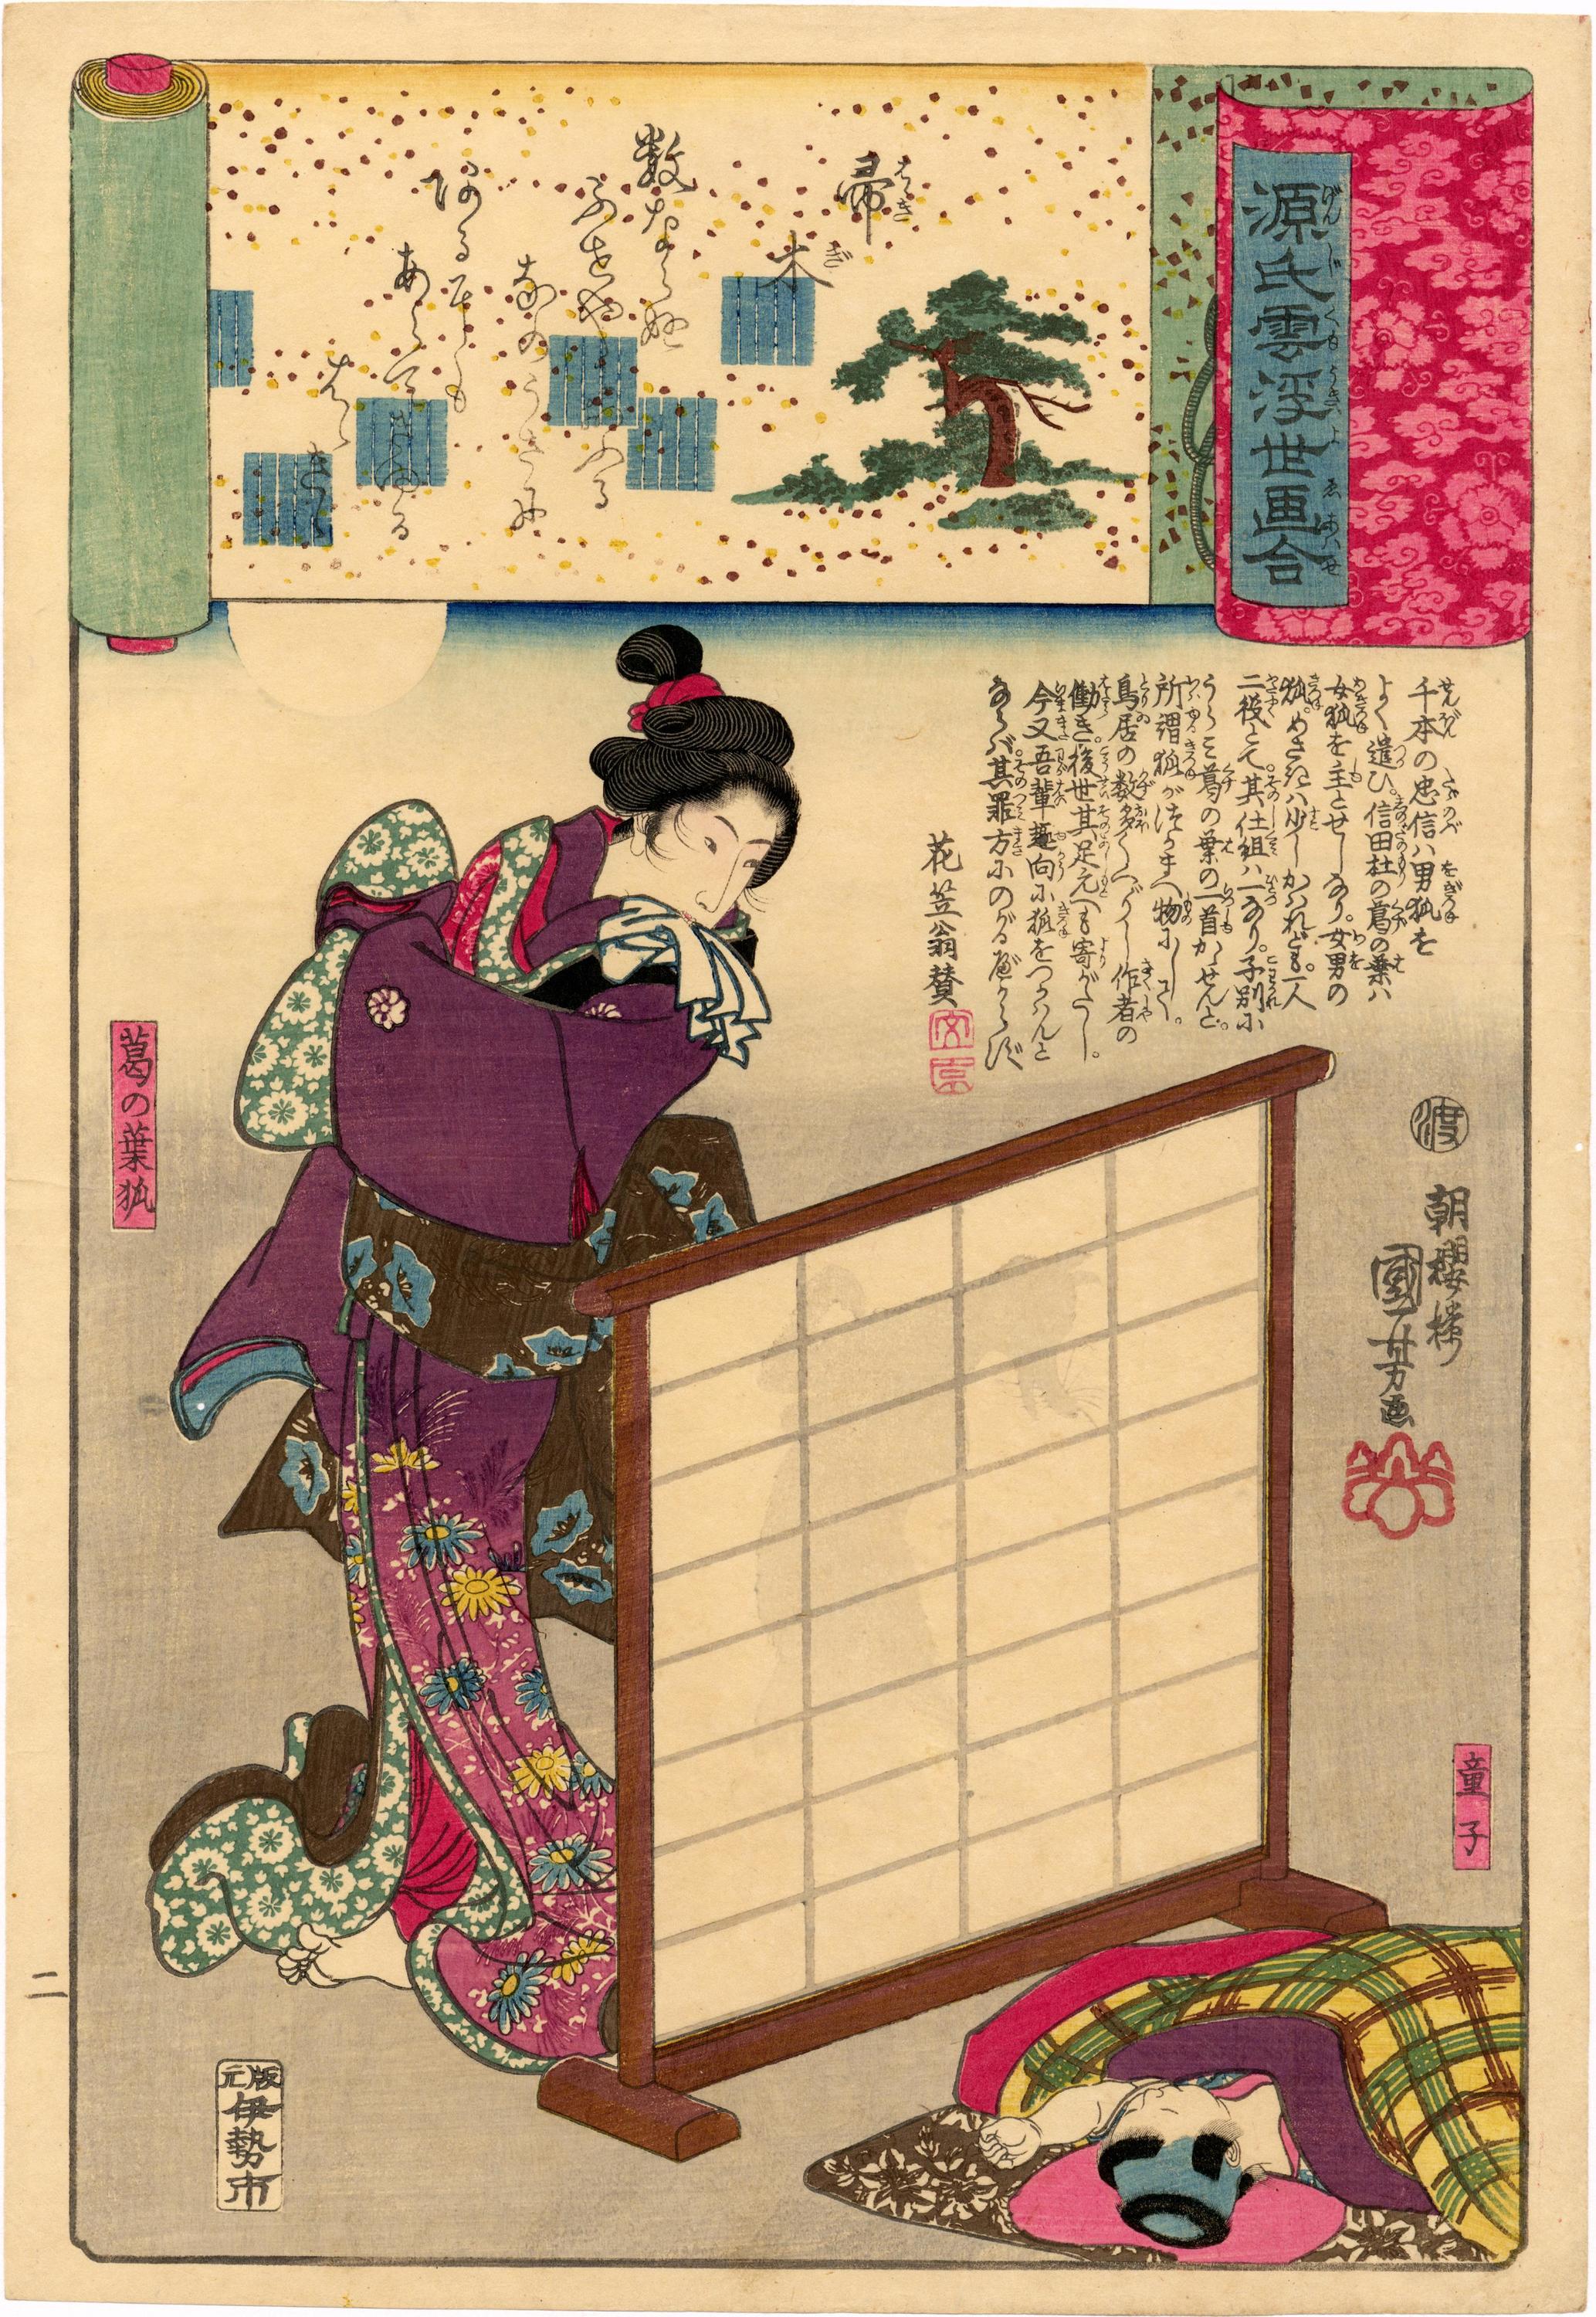 源氏雲浮世画合
帚木
数ならぬ
ふせやにおふる
なのうさに
あるにも
あらできゆる
はゝきゞ
千本の忠信ハ男狐を
よく遣ひ。信田杜の葛の葉ハ
女狐を主とせしなり。女男の
狐。めさきハ少しかハれども。一人
二役とて。其仕組ハ一なり。子別に
うらミ葛の葉の一首かゝせんと。
所謂狐がつかまへ物にして。
鳥居の数多く作者の
働き。後世其足元へも寄がたし。
今又吾輩趣向に狐をつかハんと
ならバ其罪方にのがるべからず
花笠翁賛
文京
渡
朝櫻楼
國芳画
葛の葉狐
童子
二
版元
伊勢市